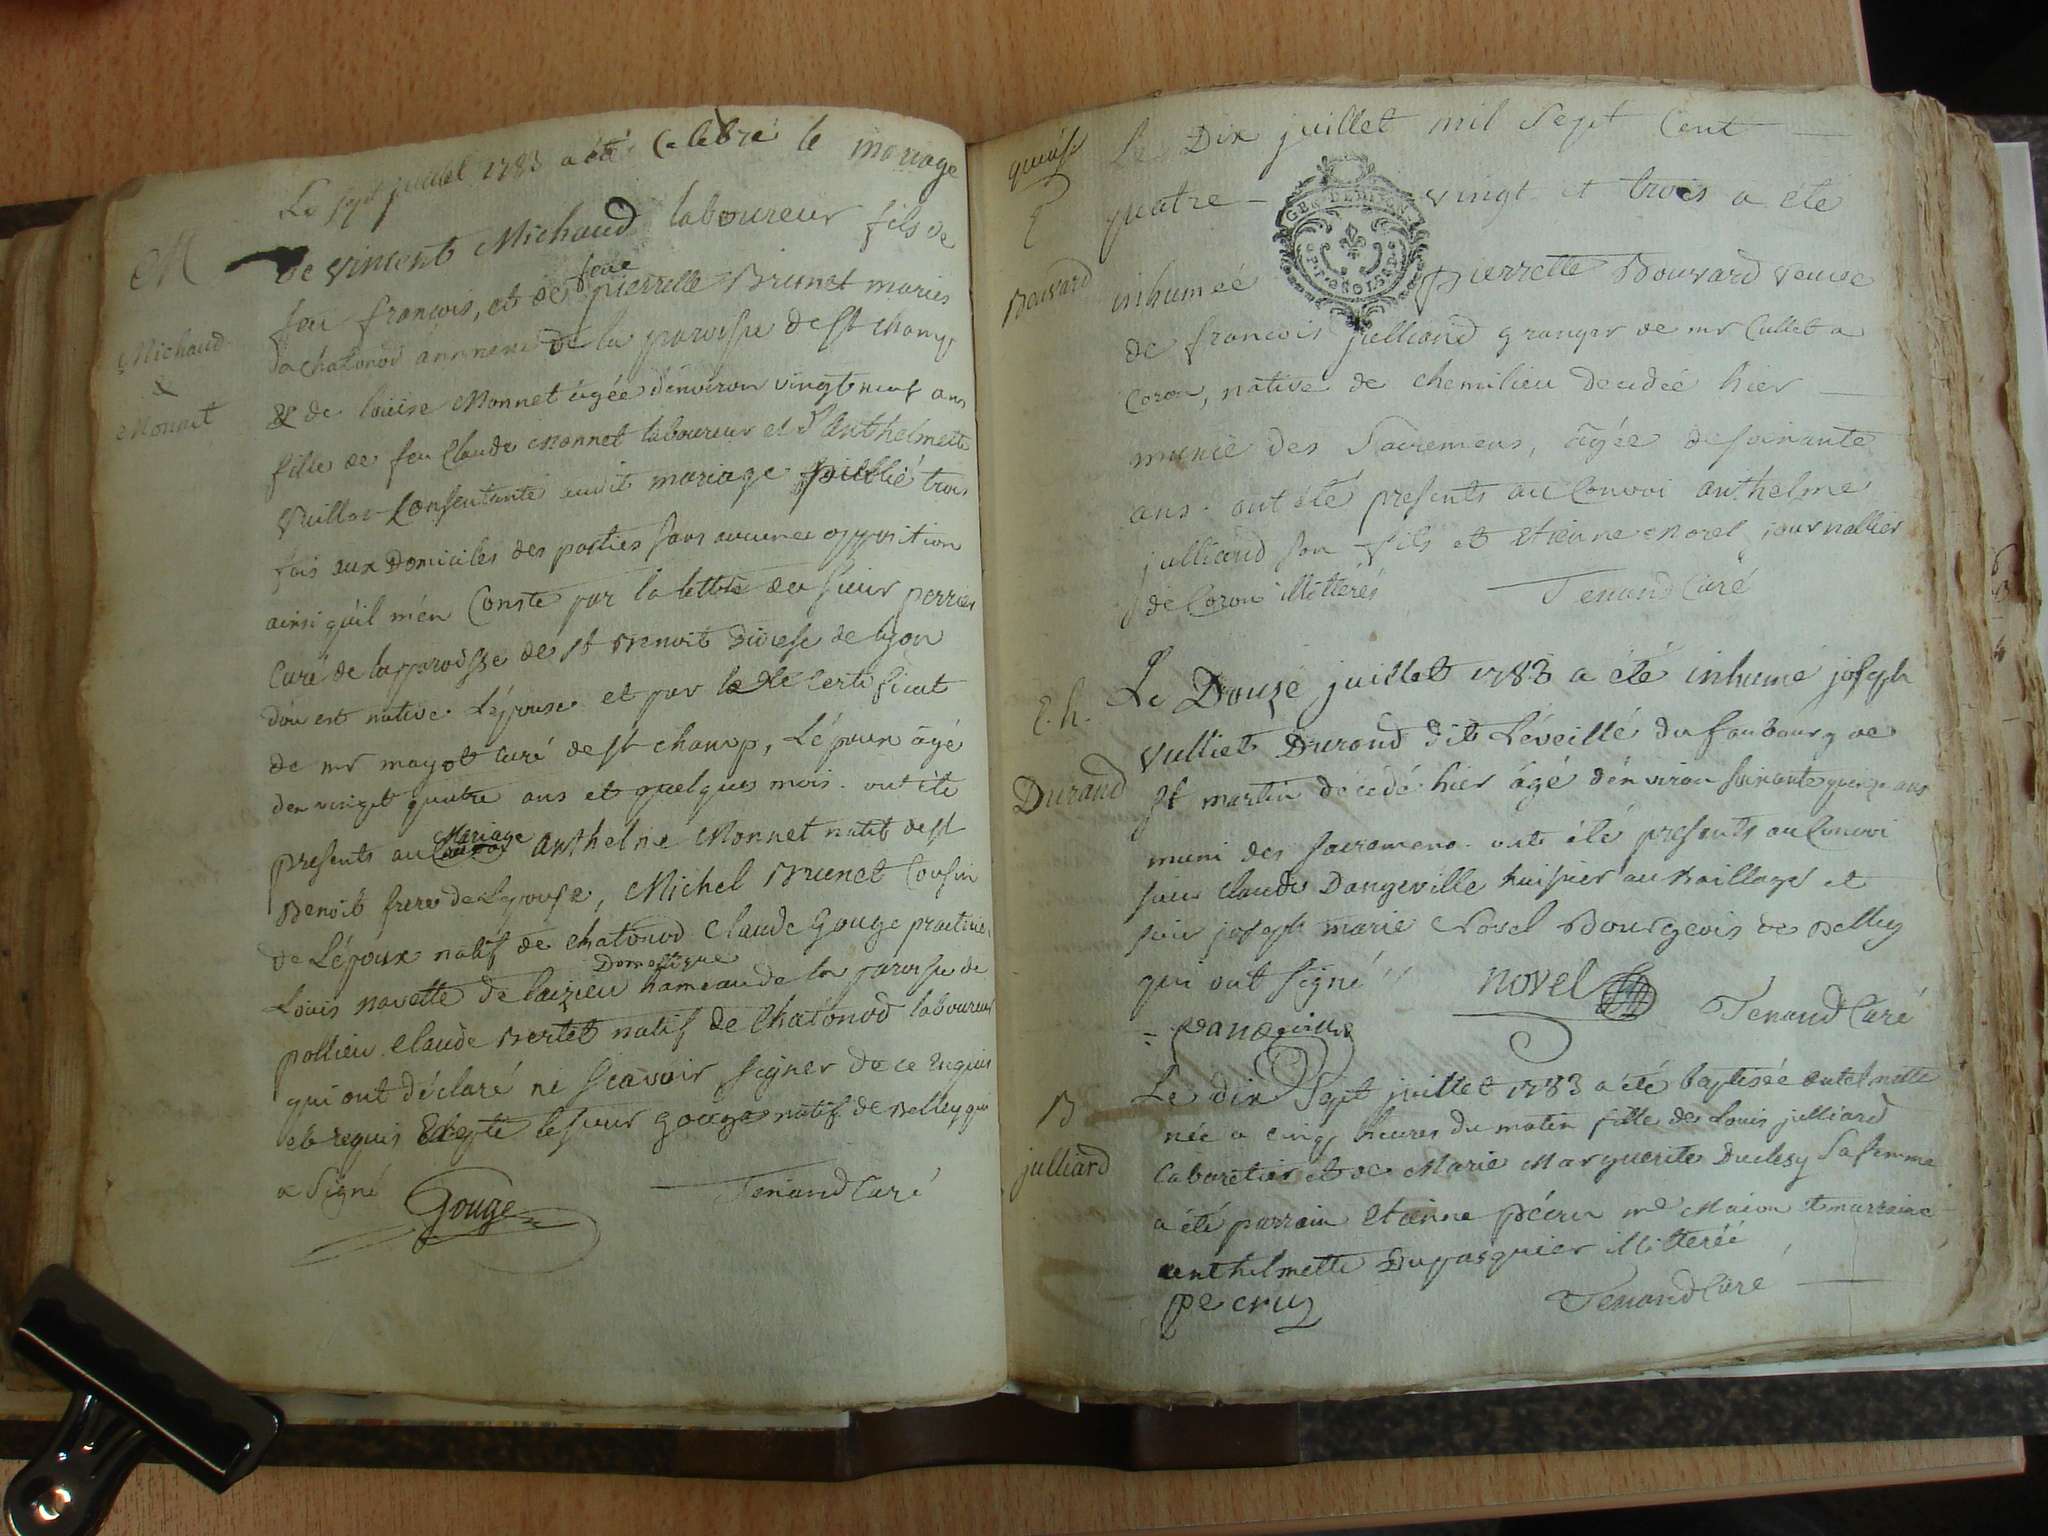 M
Michaud
&
Monnet
Le sept juillet 1783 a été Célébré le mariage
de vincent Michaud laboureur fils de
feu françois, et de feue pierrette Brunet mariés
a chatonod annexe de la paroisse de st champ
& de louise Monnet agée denviron vingt neuf ans
fille de feu Claude Monnet laboureur et d'anthelmette
Vuillar Consentante audit mariage publié trois
fois aux Domiciles des parties sans aucune opposition
ainsi qu'il m'en Conste par la lettre du sieur perrier
Curé de la paroisse de st Benoit Diocese de lyon
d'ou est native L'épouse et par le certificat
de mr mayot curé de st champ, L'époux agé
de vingt quatre ans et quelques mois. ont été
presents au Mariage anthelme Monnet natif de st
Benoit frere de L'epouse, Michel Brunet Cousin
de L'époux natif de chatonod Claude Gouge praticien
Louis navette Domestique de laizieu hameau de la paroisse de
pollieu Claude Bertet natif de Chatonod laboureur
qui ont déclaré ne scavoir signer de ce enquis
et requis Excepté le sieur gouge natif de Belley qui
a signé
Gouge
Tenand Curé
quinse
Bouvard
Le Dix juillet mil sept Cent
quatre - vingt et trois a été
inhumée pierrette Bouvard veuve
de francois julliand granger de mr Cullet a
Coron, native de chemilieu decedée hier
munie des Sacremens, agée de soixante
ans. ont été presents au Convoi anthelme
julliand son fils et Etienne Morel journallier
de Coron illitterés
Tenand Curé
E. h.
Durand
Le Douze juillet 1783 a été inhumé joseph
Vulliet Durand dit Léveillé du faubourg de
st martin décédé hier âgé d'environ soixante quinze ans
muni des sacremens. ont été presents au Convoi
sieur Claude Dangeville huissier au Baillage et
sieur joseph marie Novel Bourgeois de Belley
qui ont signé
Novel
Dangeville
Tenand Curé
B
julliard
Le dix Sept juillet 1783 a été baptisée antelmette
née a cinq heures du matin fille de Louis julliard
Cabaretier et de Marie Marguerite Duclesy Sa femme
a été parrain Etienne pécru md Maçon et marraine
anthelmette Dupasquier illitterée
pecruz
Tenand Curé